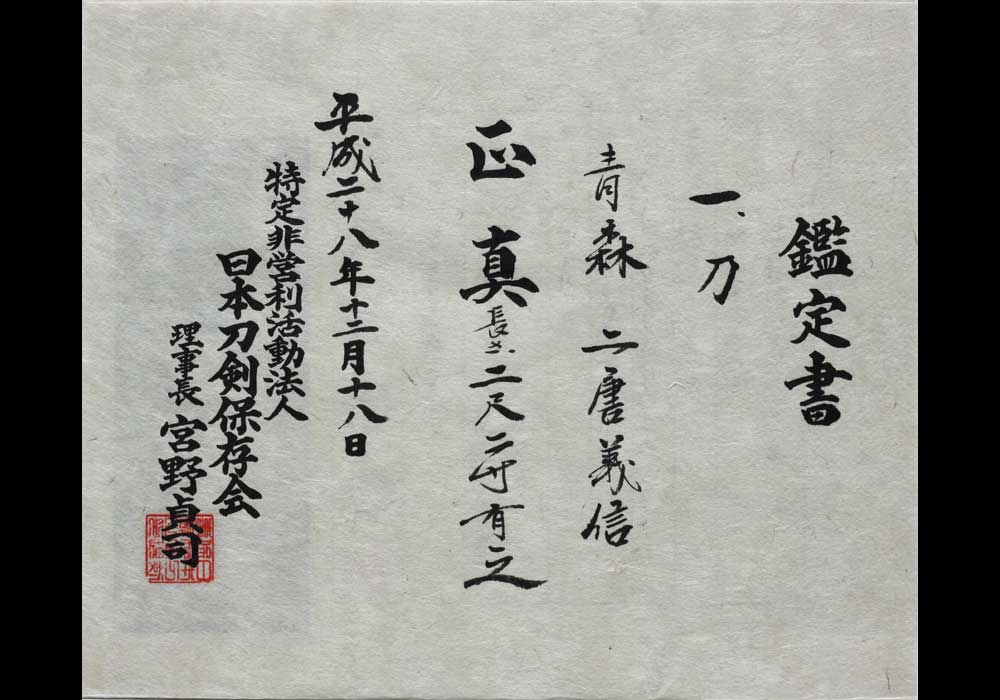 鑑定書
一、刀
青森 二唐義信
正真
長さ二尺二寸有之
平成二十八年十二月十八日
特定非営利活動法人
日本刀剣保存会
理事長 宮野貞司